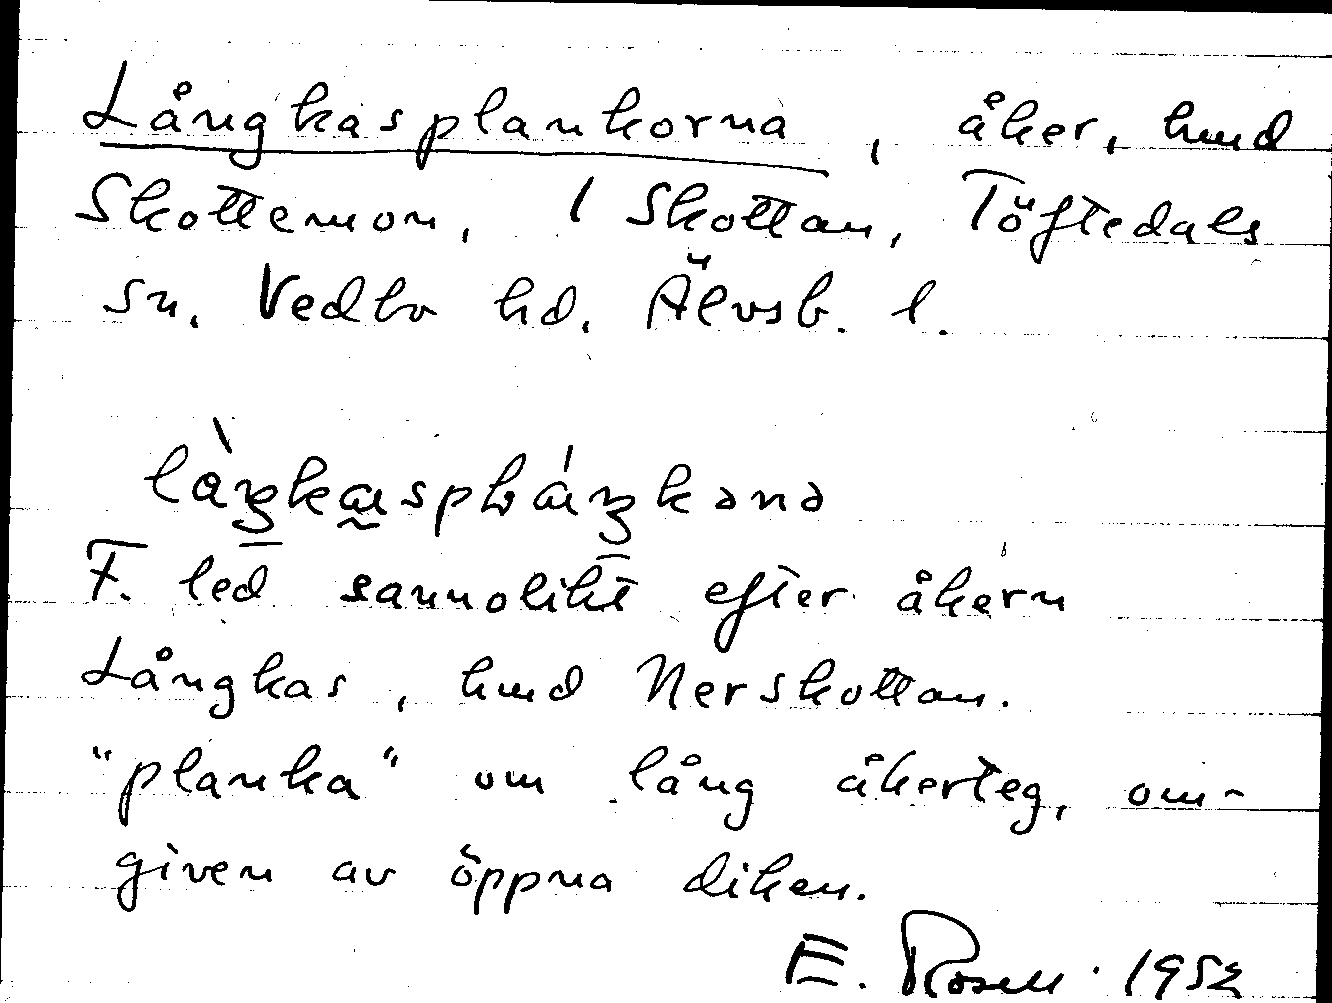 Långkasplankorna, åker, hmd
Skottemon, / Skottan, Töftedals
sn. Vedbo hd. Älvsb. l.
F. led sannolikt efter åkern
Långkas, hmd Nerskottan.
"planka" om lång åkerteg, om-
given av öppna diken.
E. Rosell. 1952